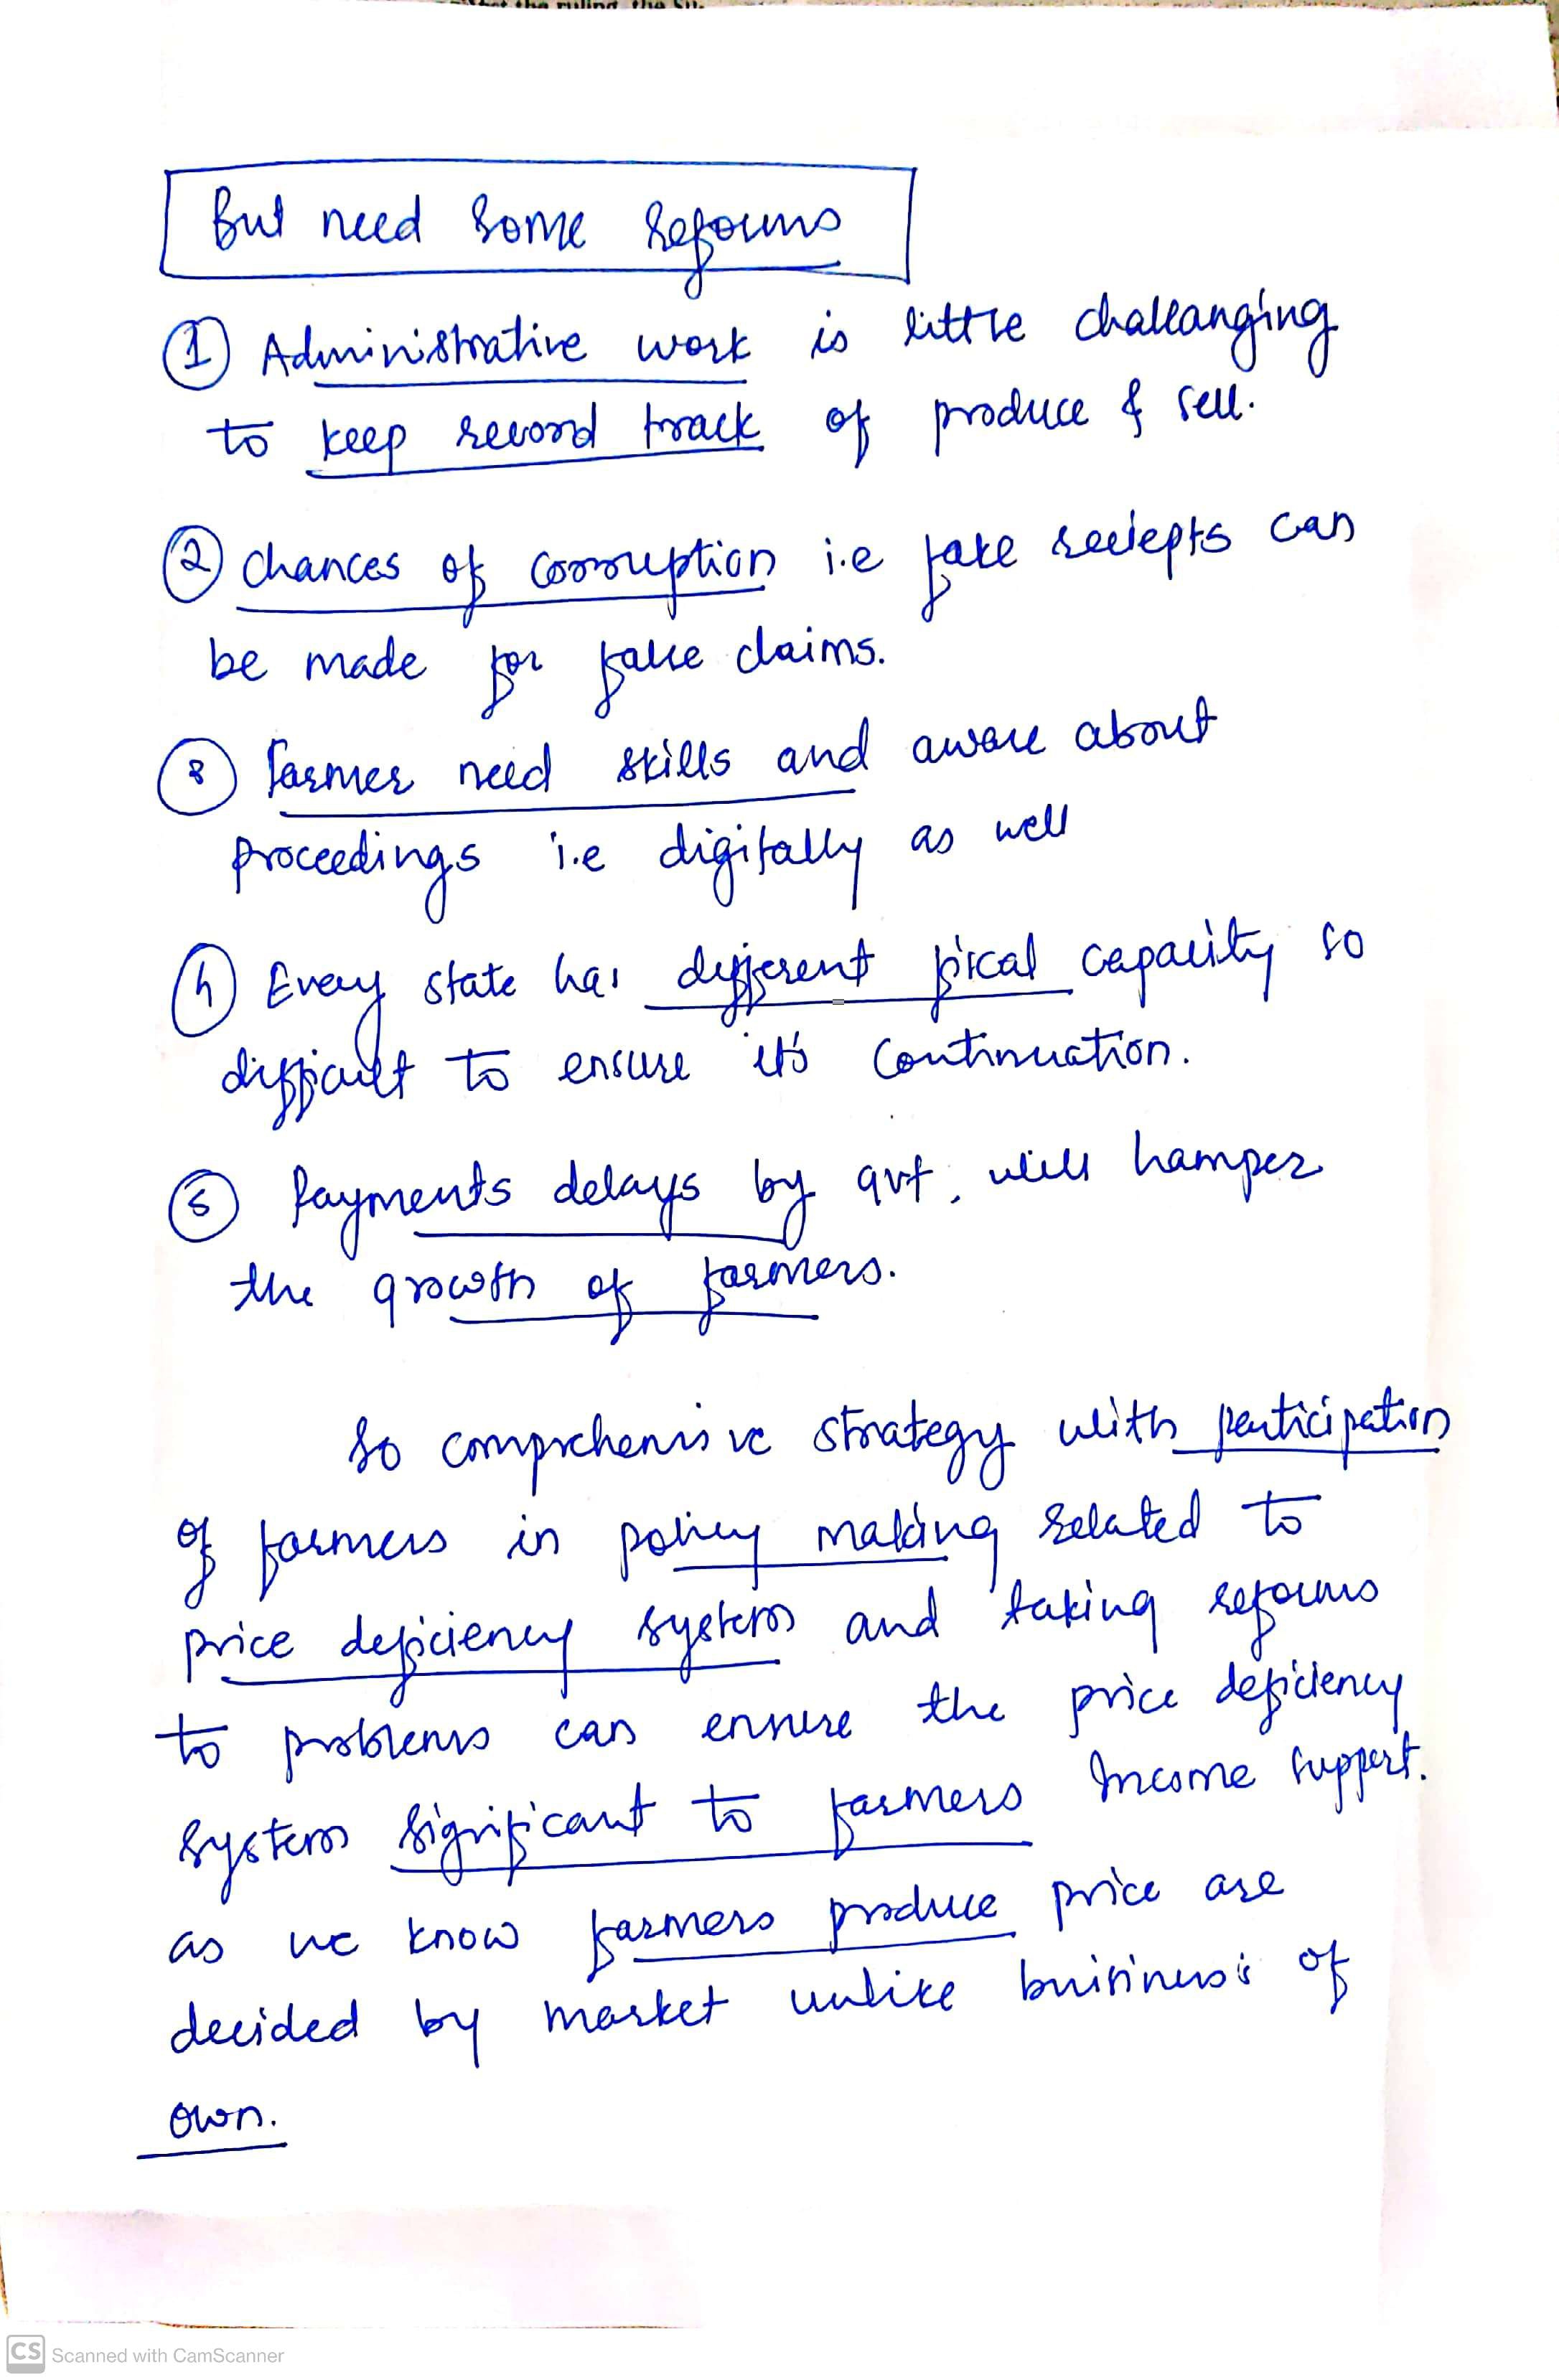 that the ruling, the Su
But need some reforms
① Administrative work is little challanging
to keep record track of produce & sell.
② Chances of corruption i.e fake reciepts can
be made for false claims.
③ Farmer need skills and aware about
proceedings i.e digitally as well
④ Every state has different fiscal capacity so
difficult to ensure it's continuation.
⑤ Payments delays by gvt. will hamper
the growth of farmers.
So comprehensive strategy with participation
of farmers in policy making related to
price deficiency system and taking reforms
to problems can ensure the price deficiency
system significant to farmers Income support.
as we know farmers produce price are
decided by market unlike businesss of
own.
CS Scanned with CamScanner